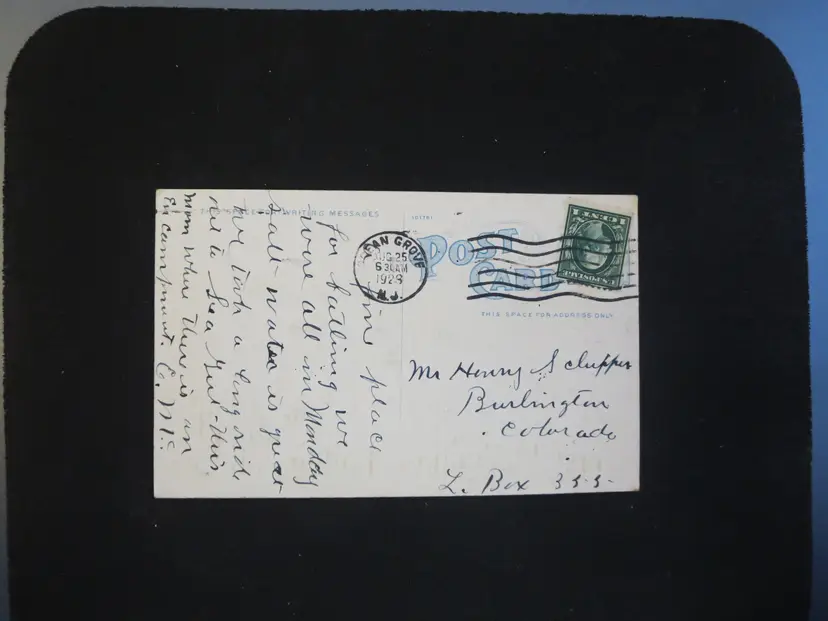 THIS SPACE FOR WRITING MESSAGES
Fine place
for bathing we
were all in Monday
salt water is great
We took a long ride
out to Sea Girt - this
morn where there is an
Encampment. E. Mc.
OCEAN GROVE
AUG 25
6 30 AM
1923
N.J.
POST
CARD
1 CENT 1
U.S. POSTAGE
THIS SPACE FOR ADDRESS ONLY
Mr Henry Schupper
Burlington
Colorado
L. Box 355